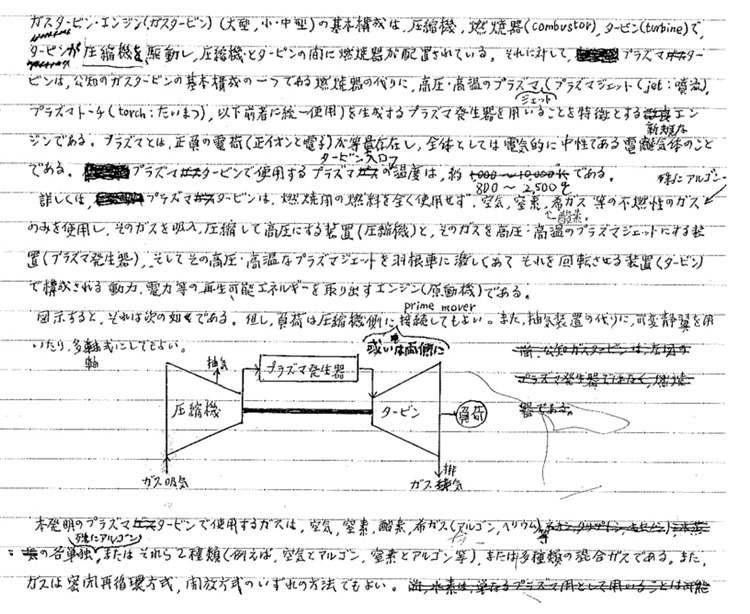 ガスタービン・エンジン(ガスタービン)(大型,小・中型)の基本構成は,圧縮機,燃焼器(combustor),タービン(turbine)で,
タービンが圧縮機を駆動し,圧縮機とタービンの間に燃焼器が配置されている。それに対して,プラズマガスター
ビンは,公知のガスタービンの基本構成の一つである燃焼器の代りに,高圧・高温のプラズマジェット(プラズマジェット(jet:噴流),
プラズマトーチ(torch:たいまつ),以下前者に統一使用)を生成するプラズマ発生器を用いることを特徴とする新規なエン
ジンである。プラズマとは,正負の電荷(正イオンと電子)が等量存在し,全体としては電気的に中性である電離気体のこと
である。プラズマガスタービンで使用するプラズマガスのタービン入口温度は,約1000〜10,000K
800〜2,500℃である。
詳しくは,プラズマガスタービンは,燃焼用の燃料を全く使用せず,空気,窒素,酸素,希ガス(特にアルゴン)等の不燃性のガス
のみを使用し,そのガスを吸入,圧縮して高圧にする装置(圧縮機)と,そのガスを高圧・高温のプラズマジェットにする装
置(プラズマ発生器),そしてその高圧・高温なプラズマジェットを羽根車に激しくあて それを回転させる装置(タービン)
で構成される動力,電力等の再生可能エネルギーを取り出すエンジン(原動機)である。
prime mover
図示すると,それは次の如くである。但し,負荷は圧縮機側に或いは両側に接続してもよい。また,抽気装置の代りに,可変静翼を用
いたり,多軸式にしてもよい。
軸
尚,公知ガスタービンは,左図の
プラズマ発生器ではなく,燃焼
器である。
抽気
プラズマ発生器
圧縮機
タービン
負荷
ガス吸気
排
ガス排気
本発明のプラズマガスタービンで使用するガスは,空気,窒素,酸素,希ガス(アルゴン,ヘリウム)等
の各単独(特にアルゴン),またはそれら2種類(例えば,空気とアルゴン,窒素とアルゴン等),または多種類の混合ガスである。また,
ガスは密閉再循環方式,開放方式のいずれの方法でもよい。尚,水素は,単なるプラズマ用として用いることは可能